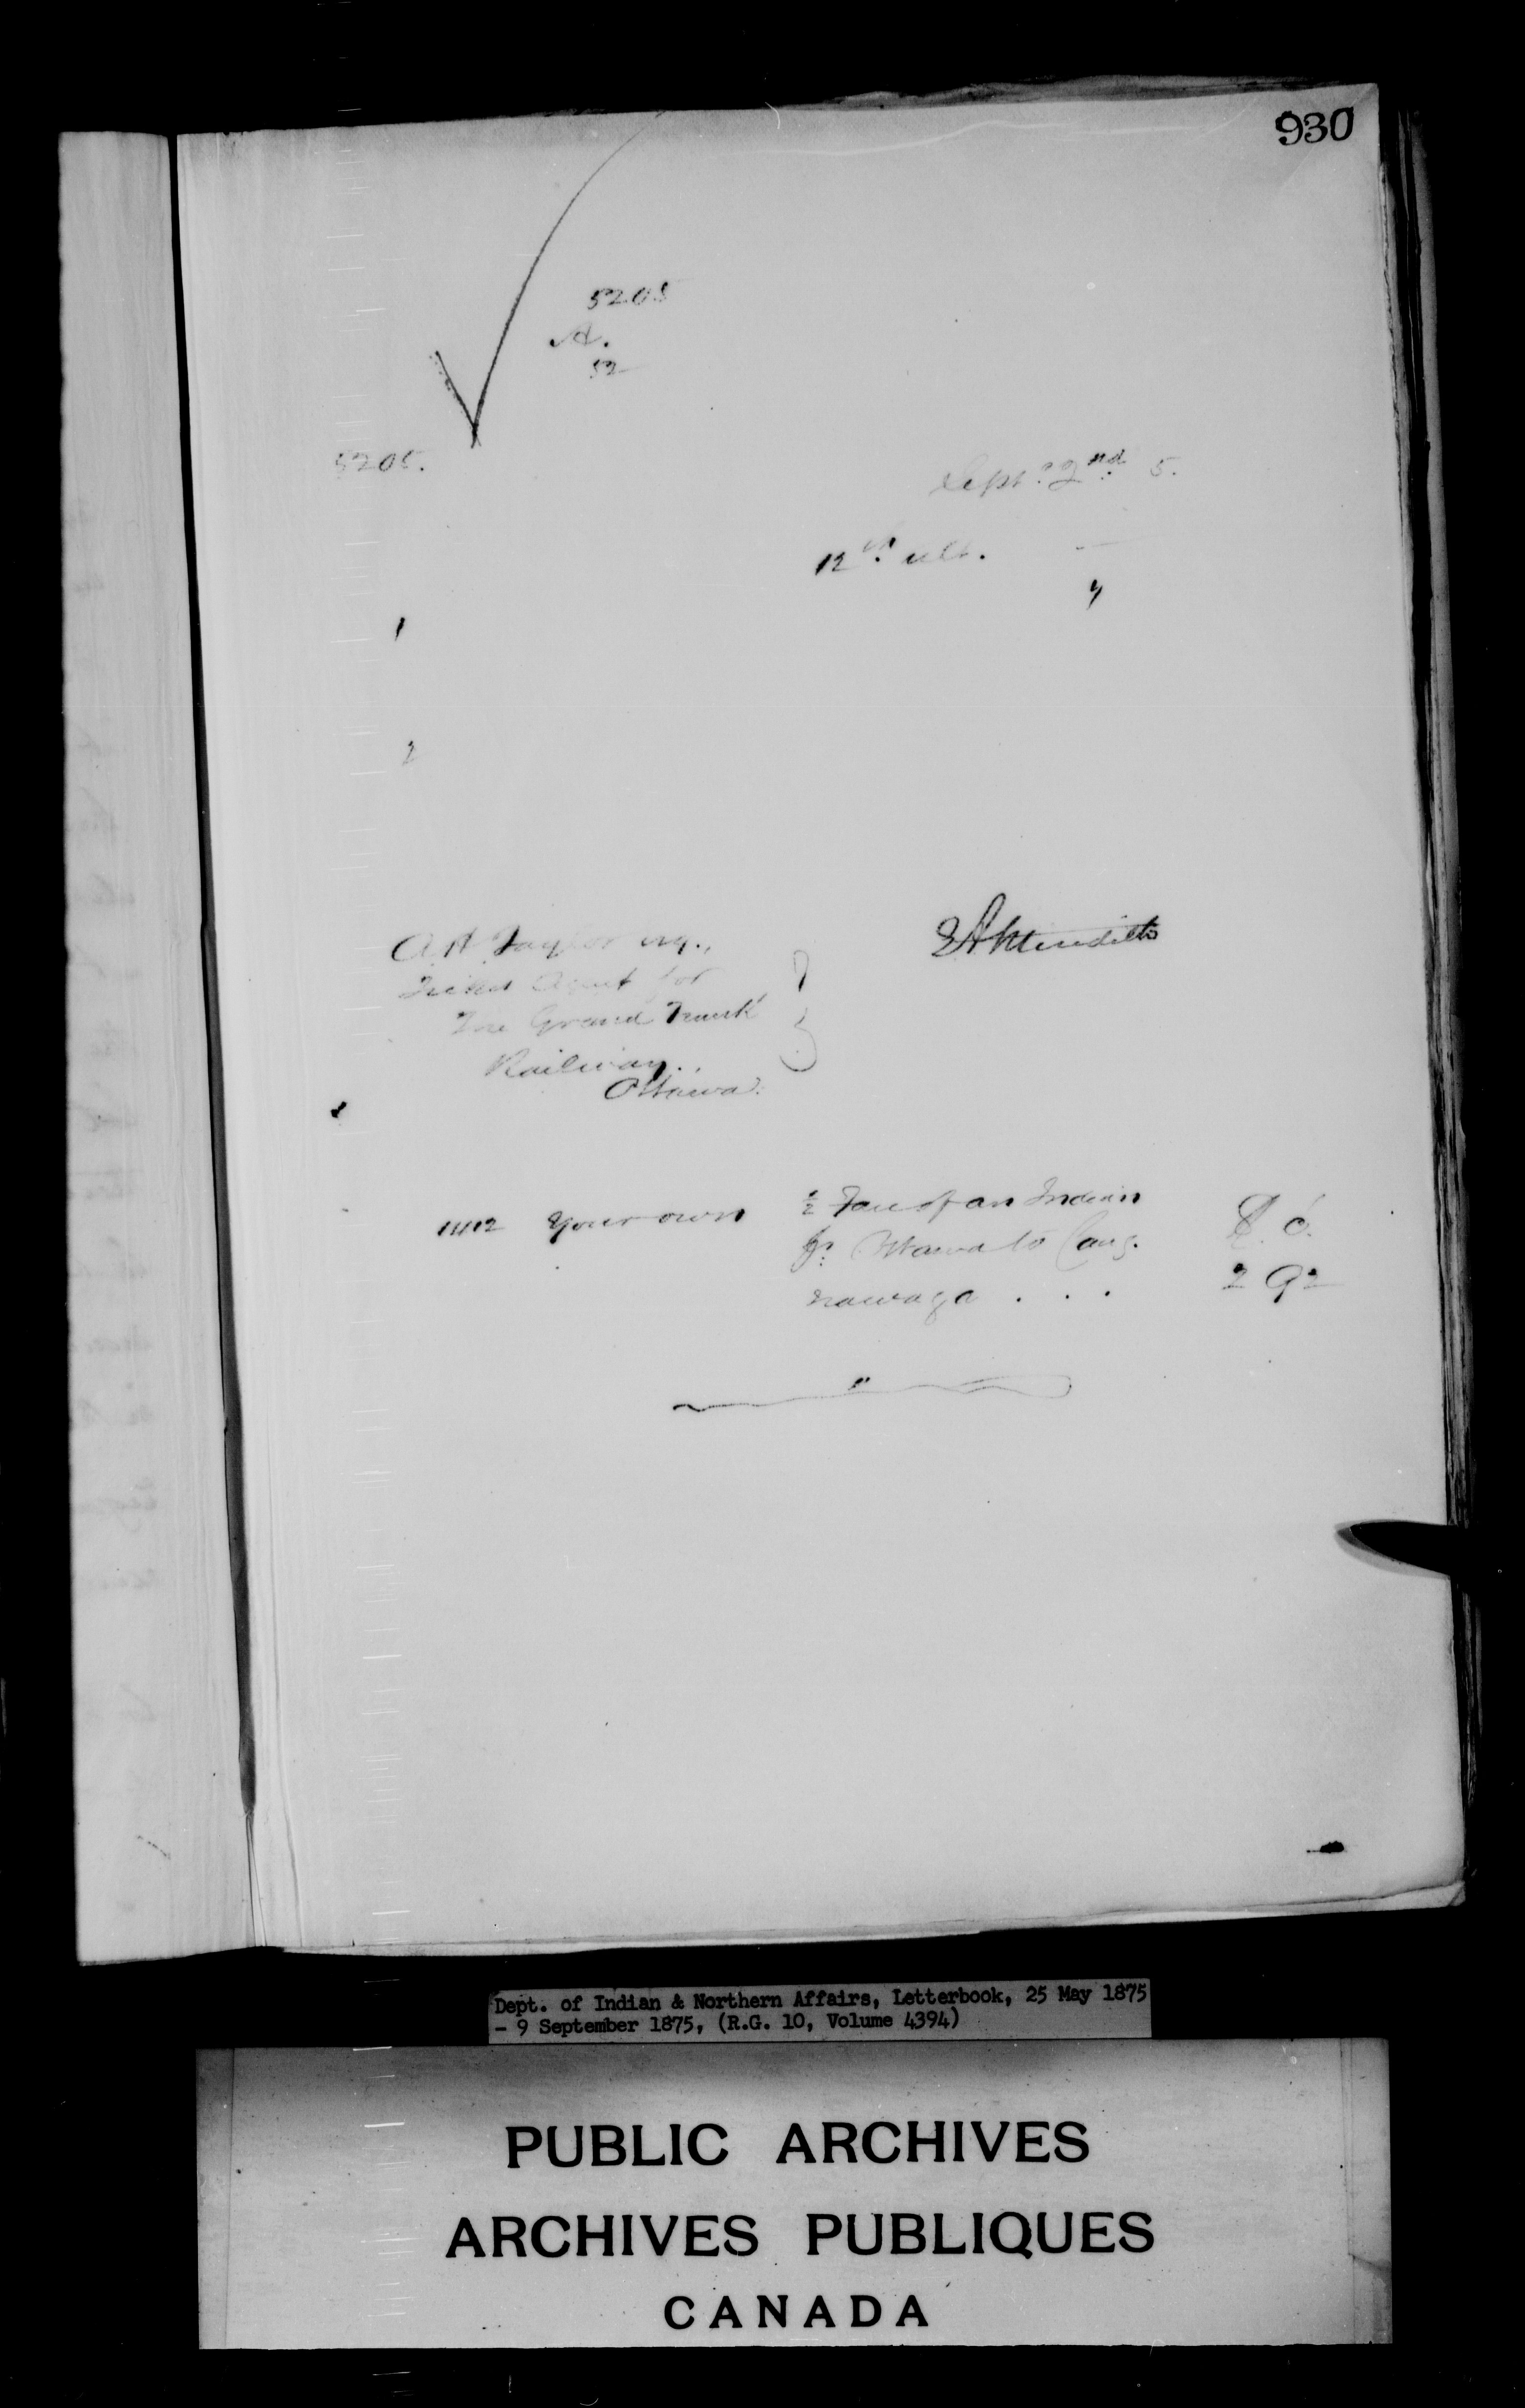 930
5205
A.
52
5205.
Sept. 2nd 5.
12th ult.
y
1
2
EAMeredith
A H Taylor Esq.,
Ticket Agent for
The Grand Trunk
Railway.
Ottawa.
1412 Your own ½ Fare of an Indian $ c.
fr. Ottawa to Caug-
nawaga . . . 2 92
"
Dept. of Indian & Northern Affairs, Letterbook, 25 May 1875
- 9 September 1875, (R.G. 10, Volume 4394)
PUBLIC ARCHIVES
ARCHIVES PUBLIQUES
CANADA